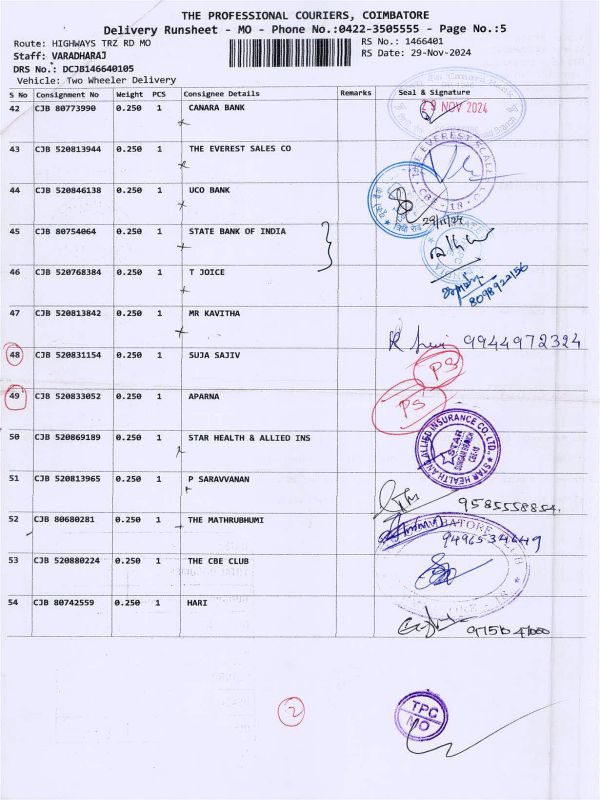 THE PROFESSIONAL COURIERS, COIMBATORE
Delivery Runsheet - MO - Phone No.:0422-3505555 - Page No.:5
Route: HIGHWAYS TRZ RD MO RS No.: 1466401
Staff: VARADHARAJ RS Date: 29-Nov-2024
DRS No.: DCJB146640105
Vehicle: Two Wheeler Delivery
S No Consignment No Weight PCS Consignee Details Remarks Seal & Signature
42 CJB 80773990 0.250 1 CANARA BANK
Canara Bank
29 NOV 2024
Branch
43 CJB 520813944 0.250 1 THE EVEREST SALES CO
THE EVEREST SCALE
CBE - 18
44 CJB 520846138 0.250 1 UCO BANK
29/11/24
45 CJB 80754064 0.250 1 STATE BANK OF INDIA
46 CJB 520768384 0.250 1 T JOICE
8098922156
47 CJB 520813842 0.250 1 MR KAVITHA
9944972324
48 CJB 520831154 0.250 1 SUJA SAJIV
PS
49 CJB 520833052 0.250 1 APARNA
PS
50 CJB 520869189 0.250 1 STAR HEALTH & ALLIED INS
STAR HEALTH AND ALLIED INSURANCE CO. LTD.,
STAR
51 CJB 520813965 0.250 1 P SARAVVANAN
9585558854.
52 CJB 80680281 0.250 1 THE MATHRUBHUMI
9496534449
53 CJB 520880224 0.250 1 THE CBE CLUB
54 CJB 80742559 0.250 1 HARI
2
TPC
MO